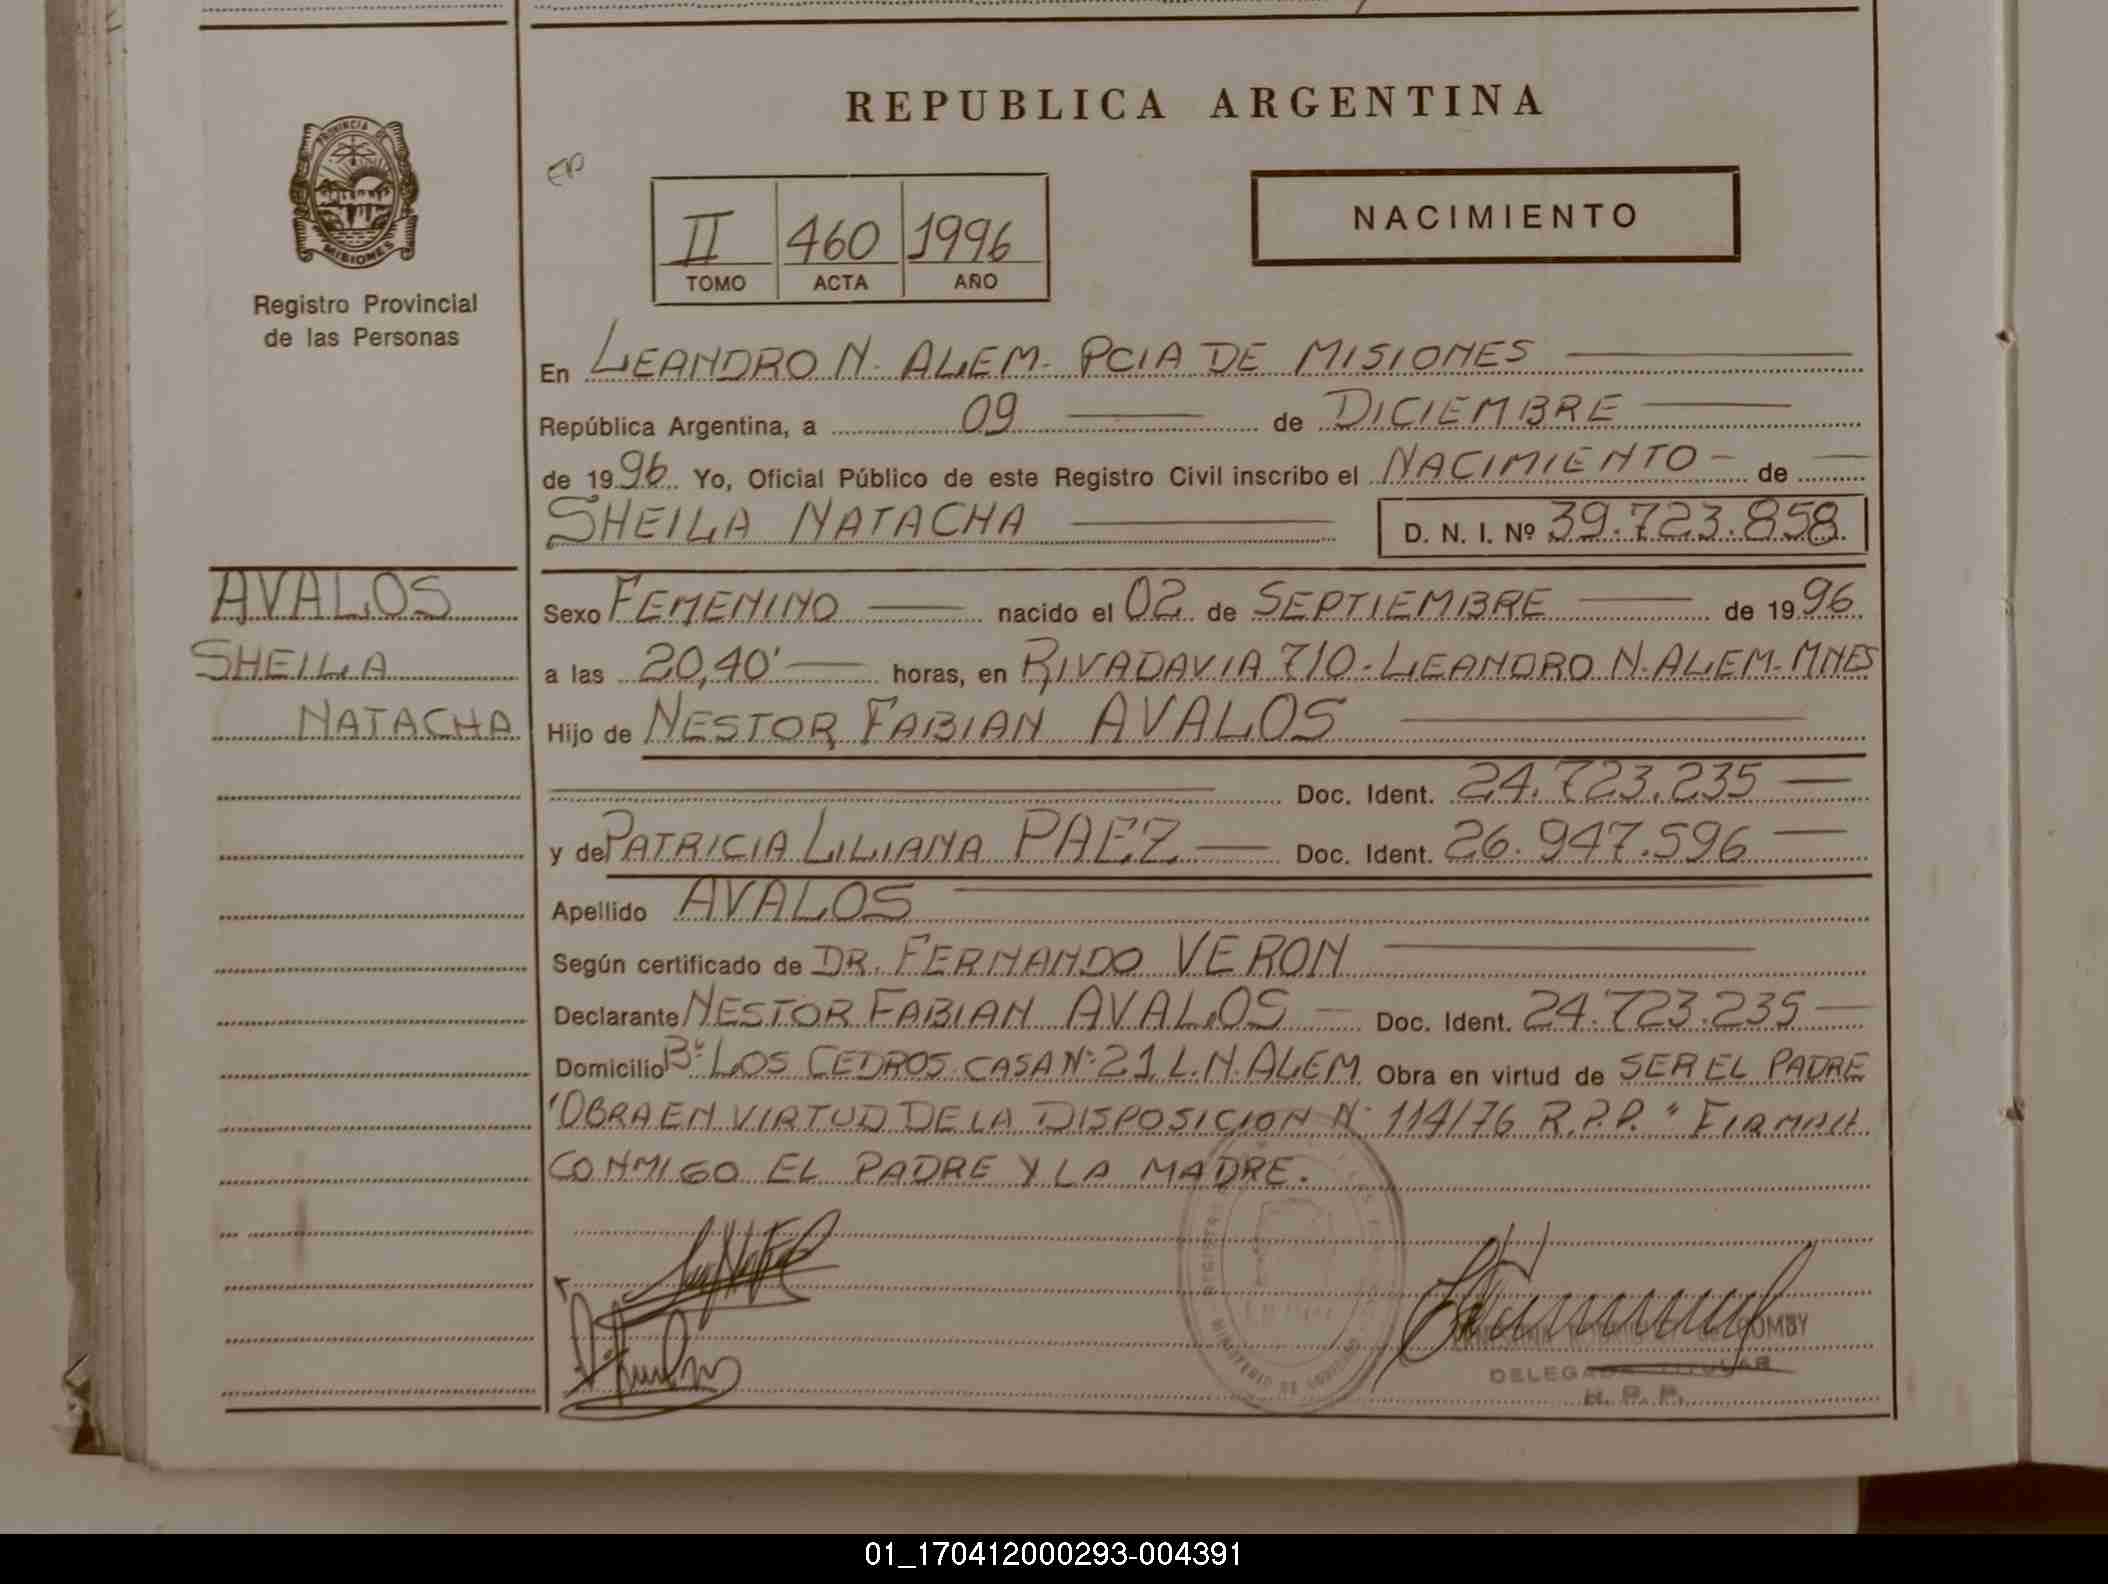 REPUBLICA ARGENTINA
PROVINCIA DE
MISIONES
Registro Provincial
de las Personas
II 460 1996
TOMO ACTA AÑO
NACIMIENTO
En LEANDRO N. ALEM - PCIA DE MISIONES
República Argentina, a 09 de DICIEMBRE
de 1996 Yo, Oficial Público de este Registro Civil inscribo el NACIMIENTO - de
SHEILA NATACHA D. N. I. Nº 39.723.858.
AVALOS
SHEILA
NATACHA
Sexo FEMENINO nacido el 02 de SEPTIEMBRE de 1996
a las 20,40' horas, en RIVADAVIA 710 - LEANDRO N. ALEM - MNES
Hijo de NESTOR FABIAN AVALOS
Doc. Ident. 24.723.235
y de PATRICIA LILIANA PAEZ Doc. Ident. 26.947.596
Apellido AVALOS
Según certificado de DR. FERNANDO VERON
Declarante NESTOR FABIAN AVALOS Doc. Ident. 24.723.235
Domicilio Bº LOS CEDROS CASA Nº 21 L.N. ALEM Obra en virtud de SER EL PADRE
"OBRA EN VIRTUD DE LA DISPOSICION Nº 114/76 R.P.P." FIRMAN
CONMIGO EL PADRE Y LA MADRE.
MINISTERIO DE GOBIERNO
DELEGADA TITULAR
R. P. P.
01_170412000293-004391